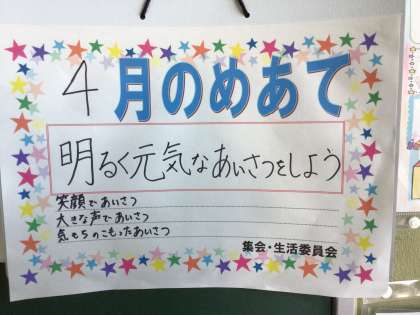 4月のめあて
明るく元気なあいさつをしよう
笑顔であいさつ
大きな声であいさつ
気もちのこもったあいさつ
集会・生活委員会